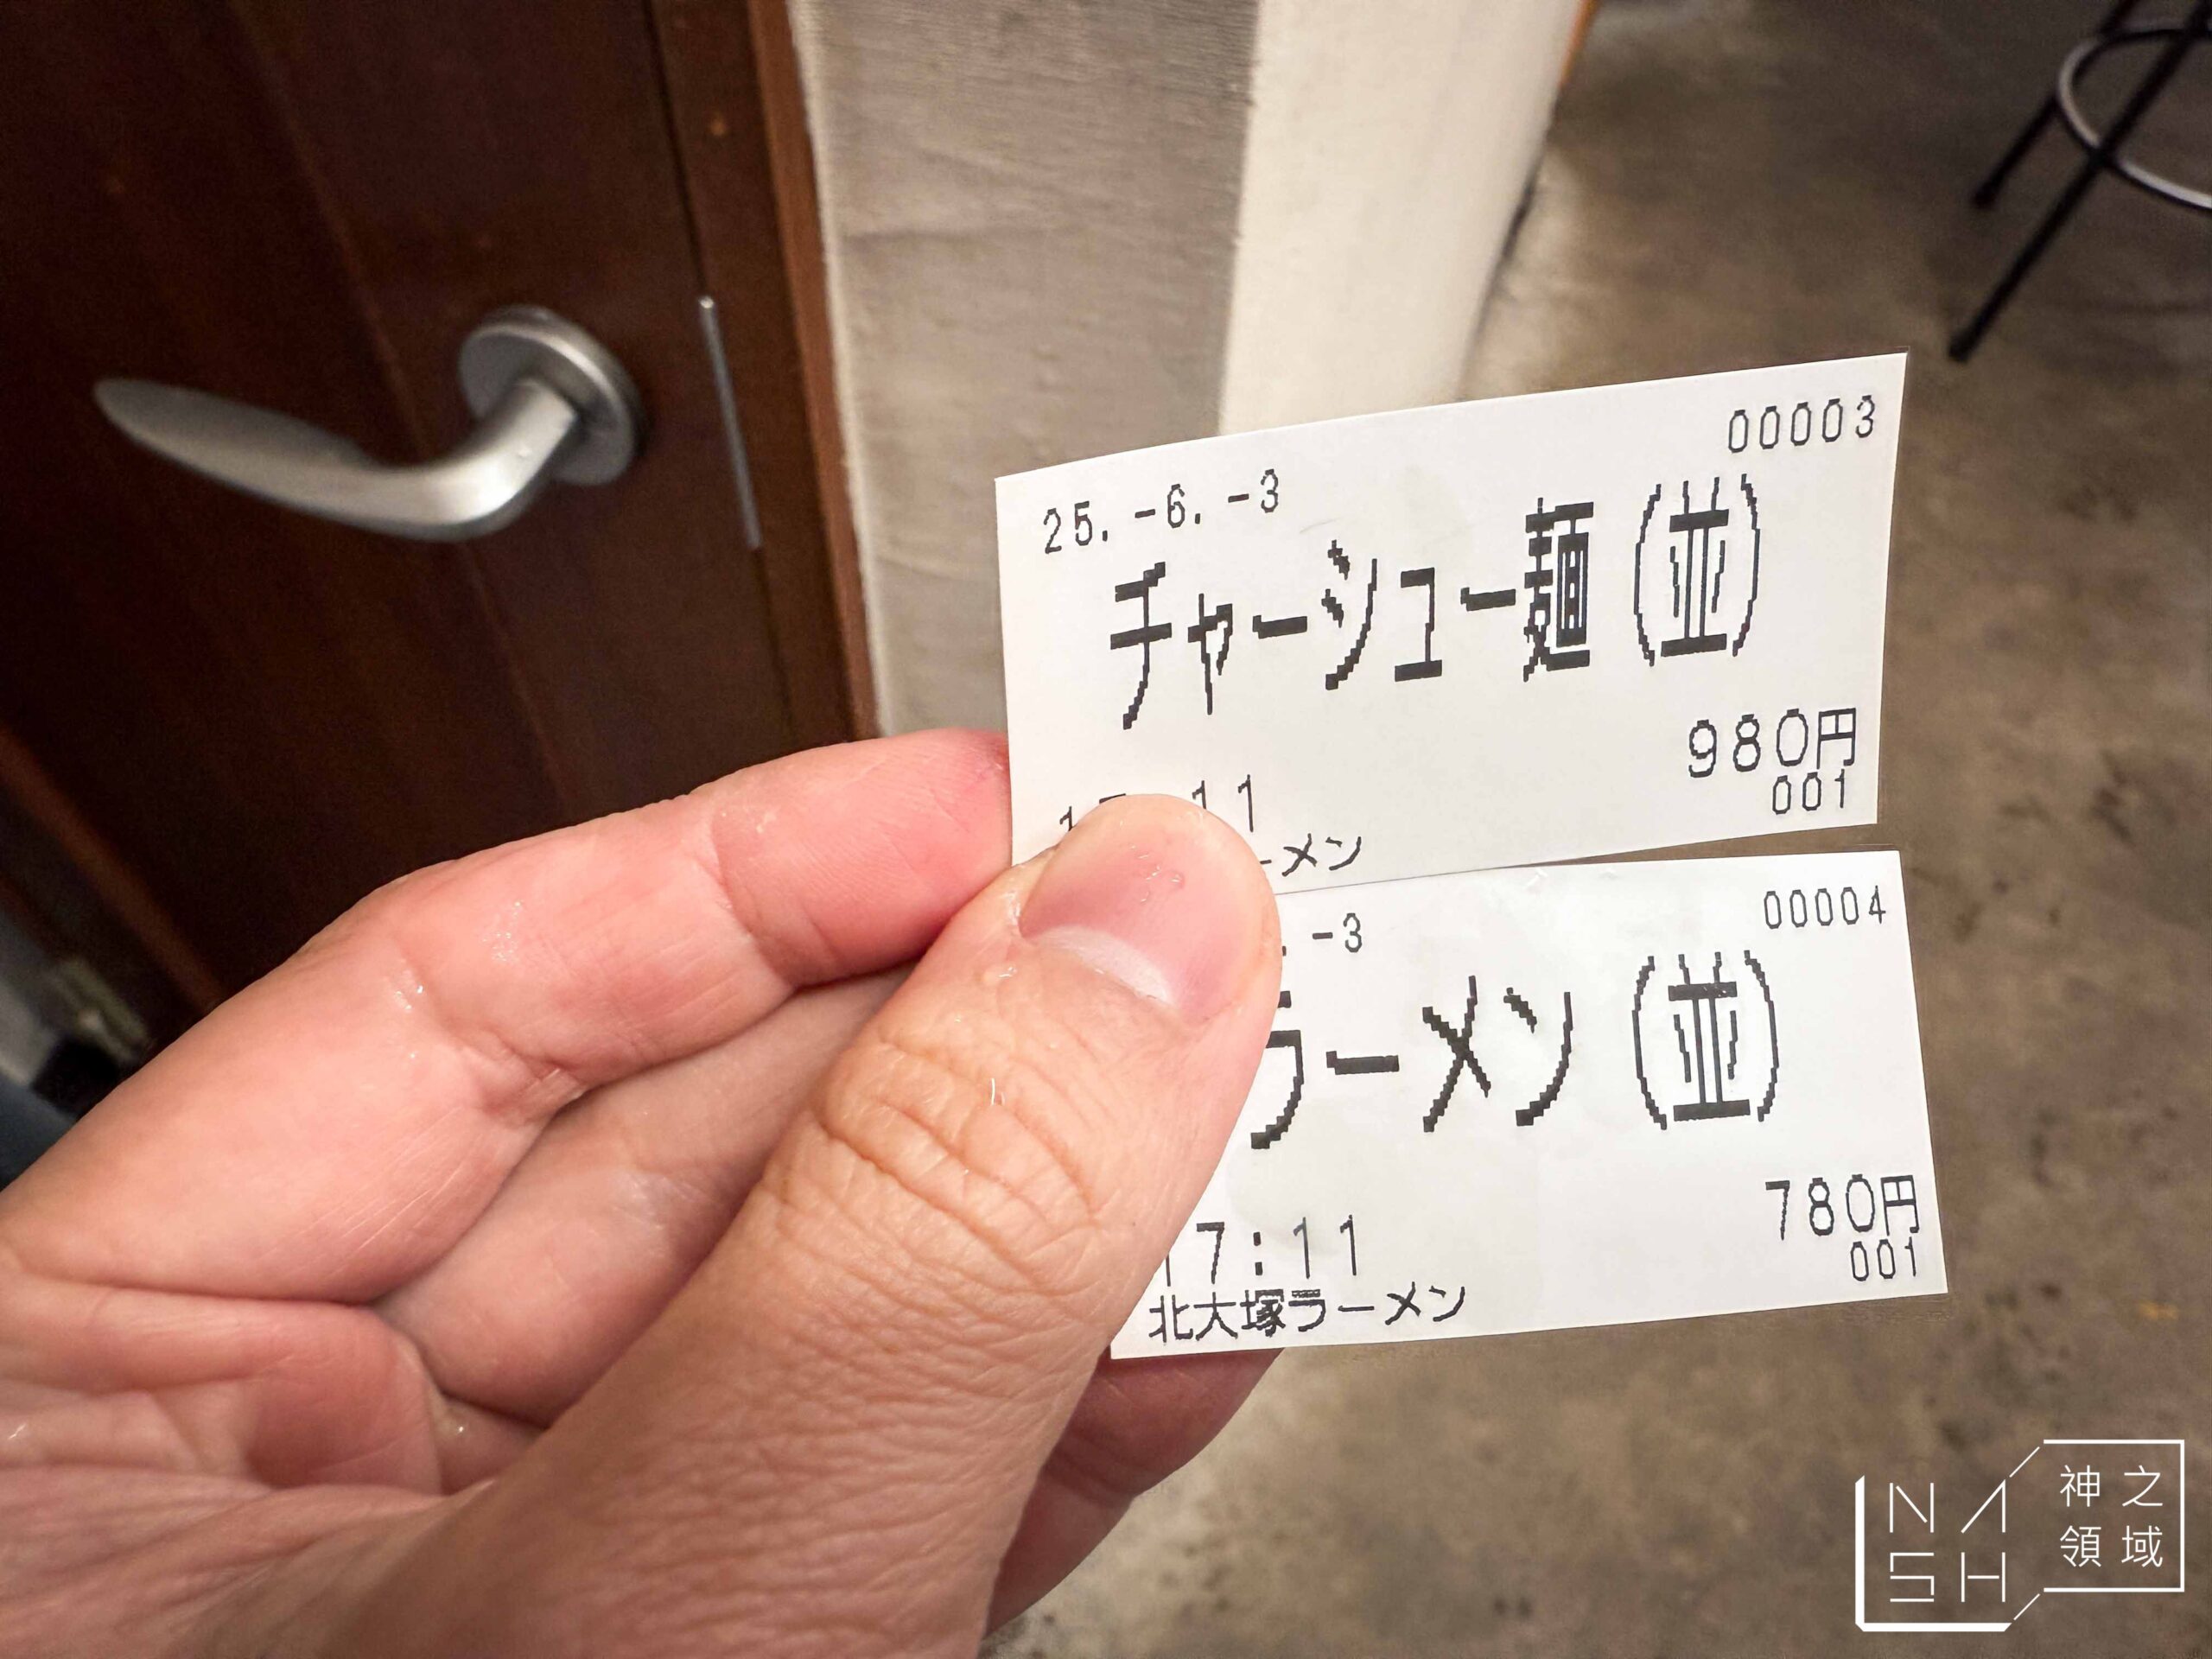 00003
25.-6.-3
チャーシュー麺(並)
980円
001
11
ーメン
00004
-3
ラーメン(並)
780円
17:11
001
北大塚ラーメン
NASH
神之
領域